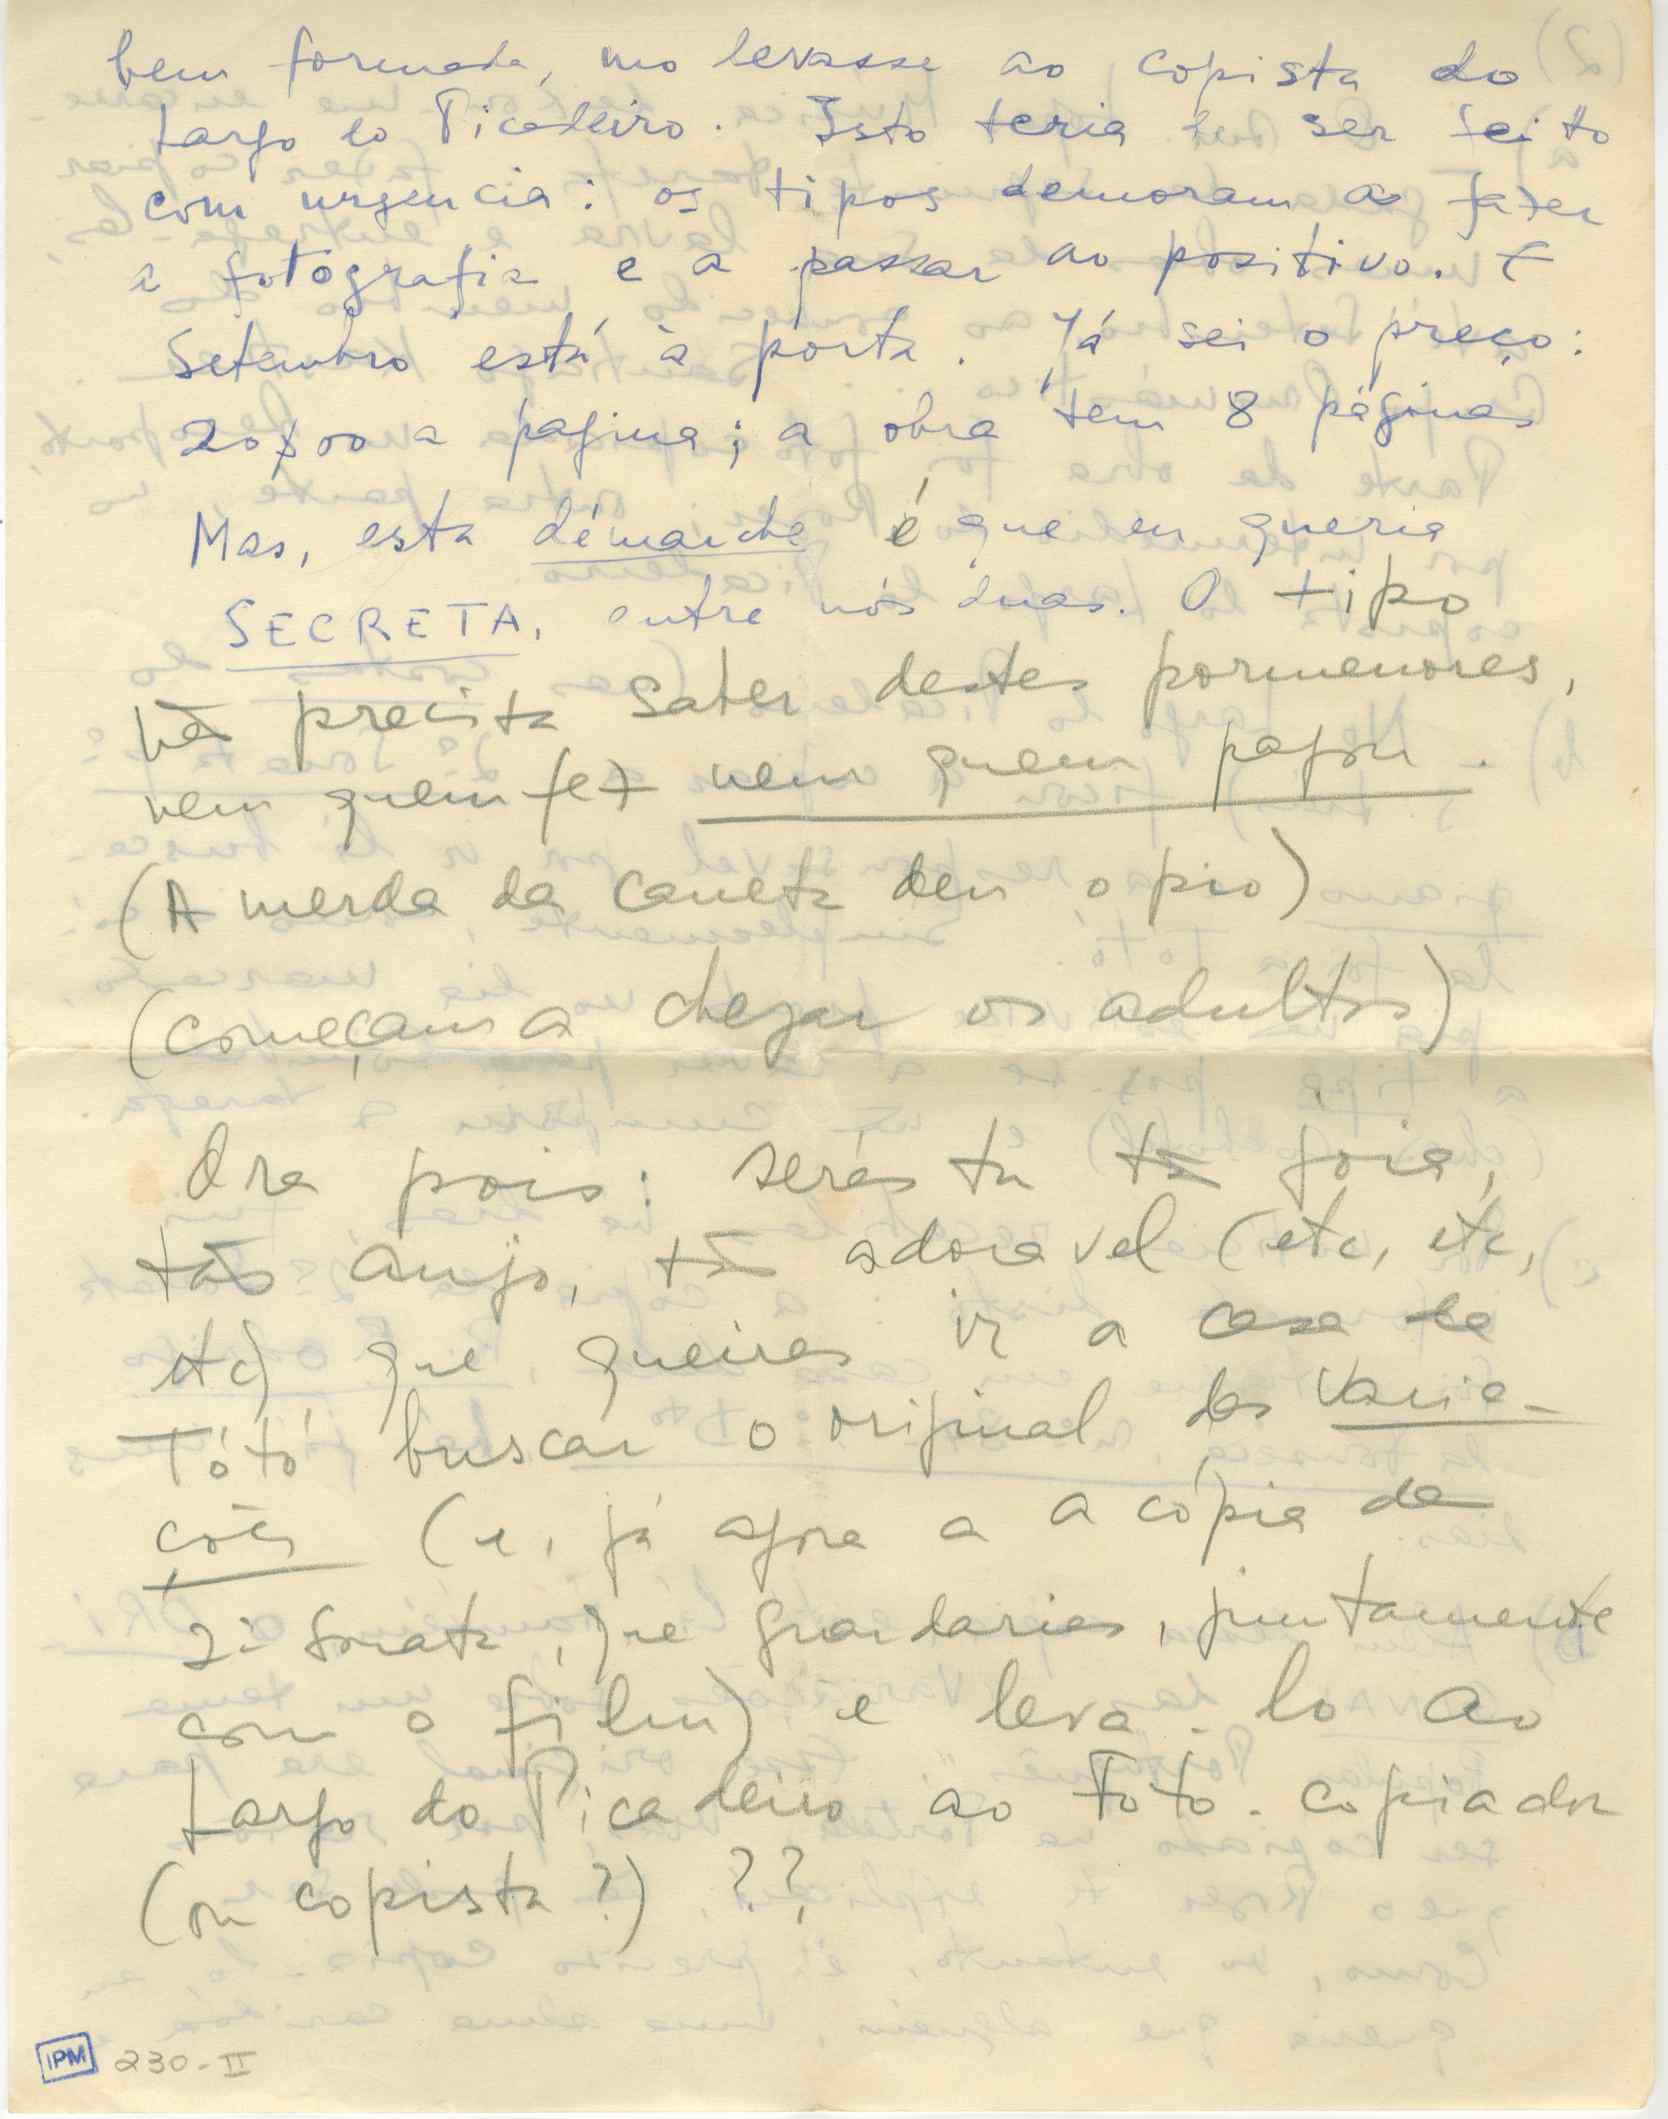 bem formada, mo levasse ao copista do
Largo do Picadeiro. Isto teria de ser feito
com urgencia: os tipos demoram a fazer
a fotografia e a passar ao positivo. E
Setembro está à porta. Já sei o preço:
20$00 a pagina; a obra tem 8 páginas
Mas, esta démarche é que eu queria
SECRETA, entre nós duas. O tipo
nã precisa saber destes pormenores,
nem quem fez nem quem pagou.
(A merda da caneta deu o pio)
(começam a chegar os adultos)
Ora pois: serás tu tã joia,
tão anjo, tã adoravel (etc, etc,
etc) que queiras ir a casa da
Tótó buscar o original das Varia-
ções (e, já agora a a cópia da
2ª Sonata, que guardarias, juntamente
com o film) e leva-lo ao
Largo do Picadeiro ao Foto-copiador
(ou copista?) ??
IPM 230-II